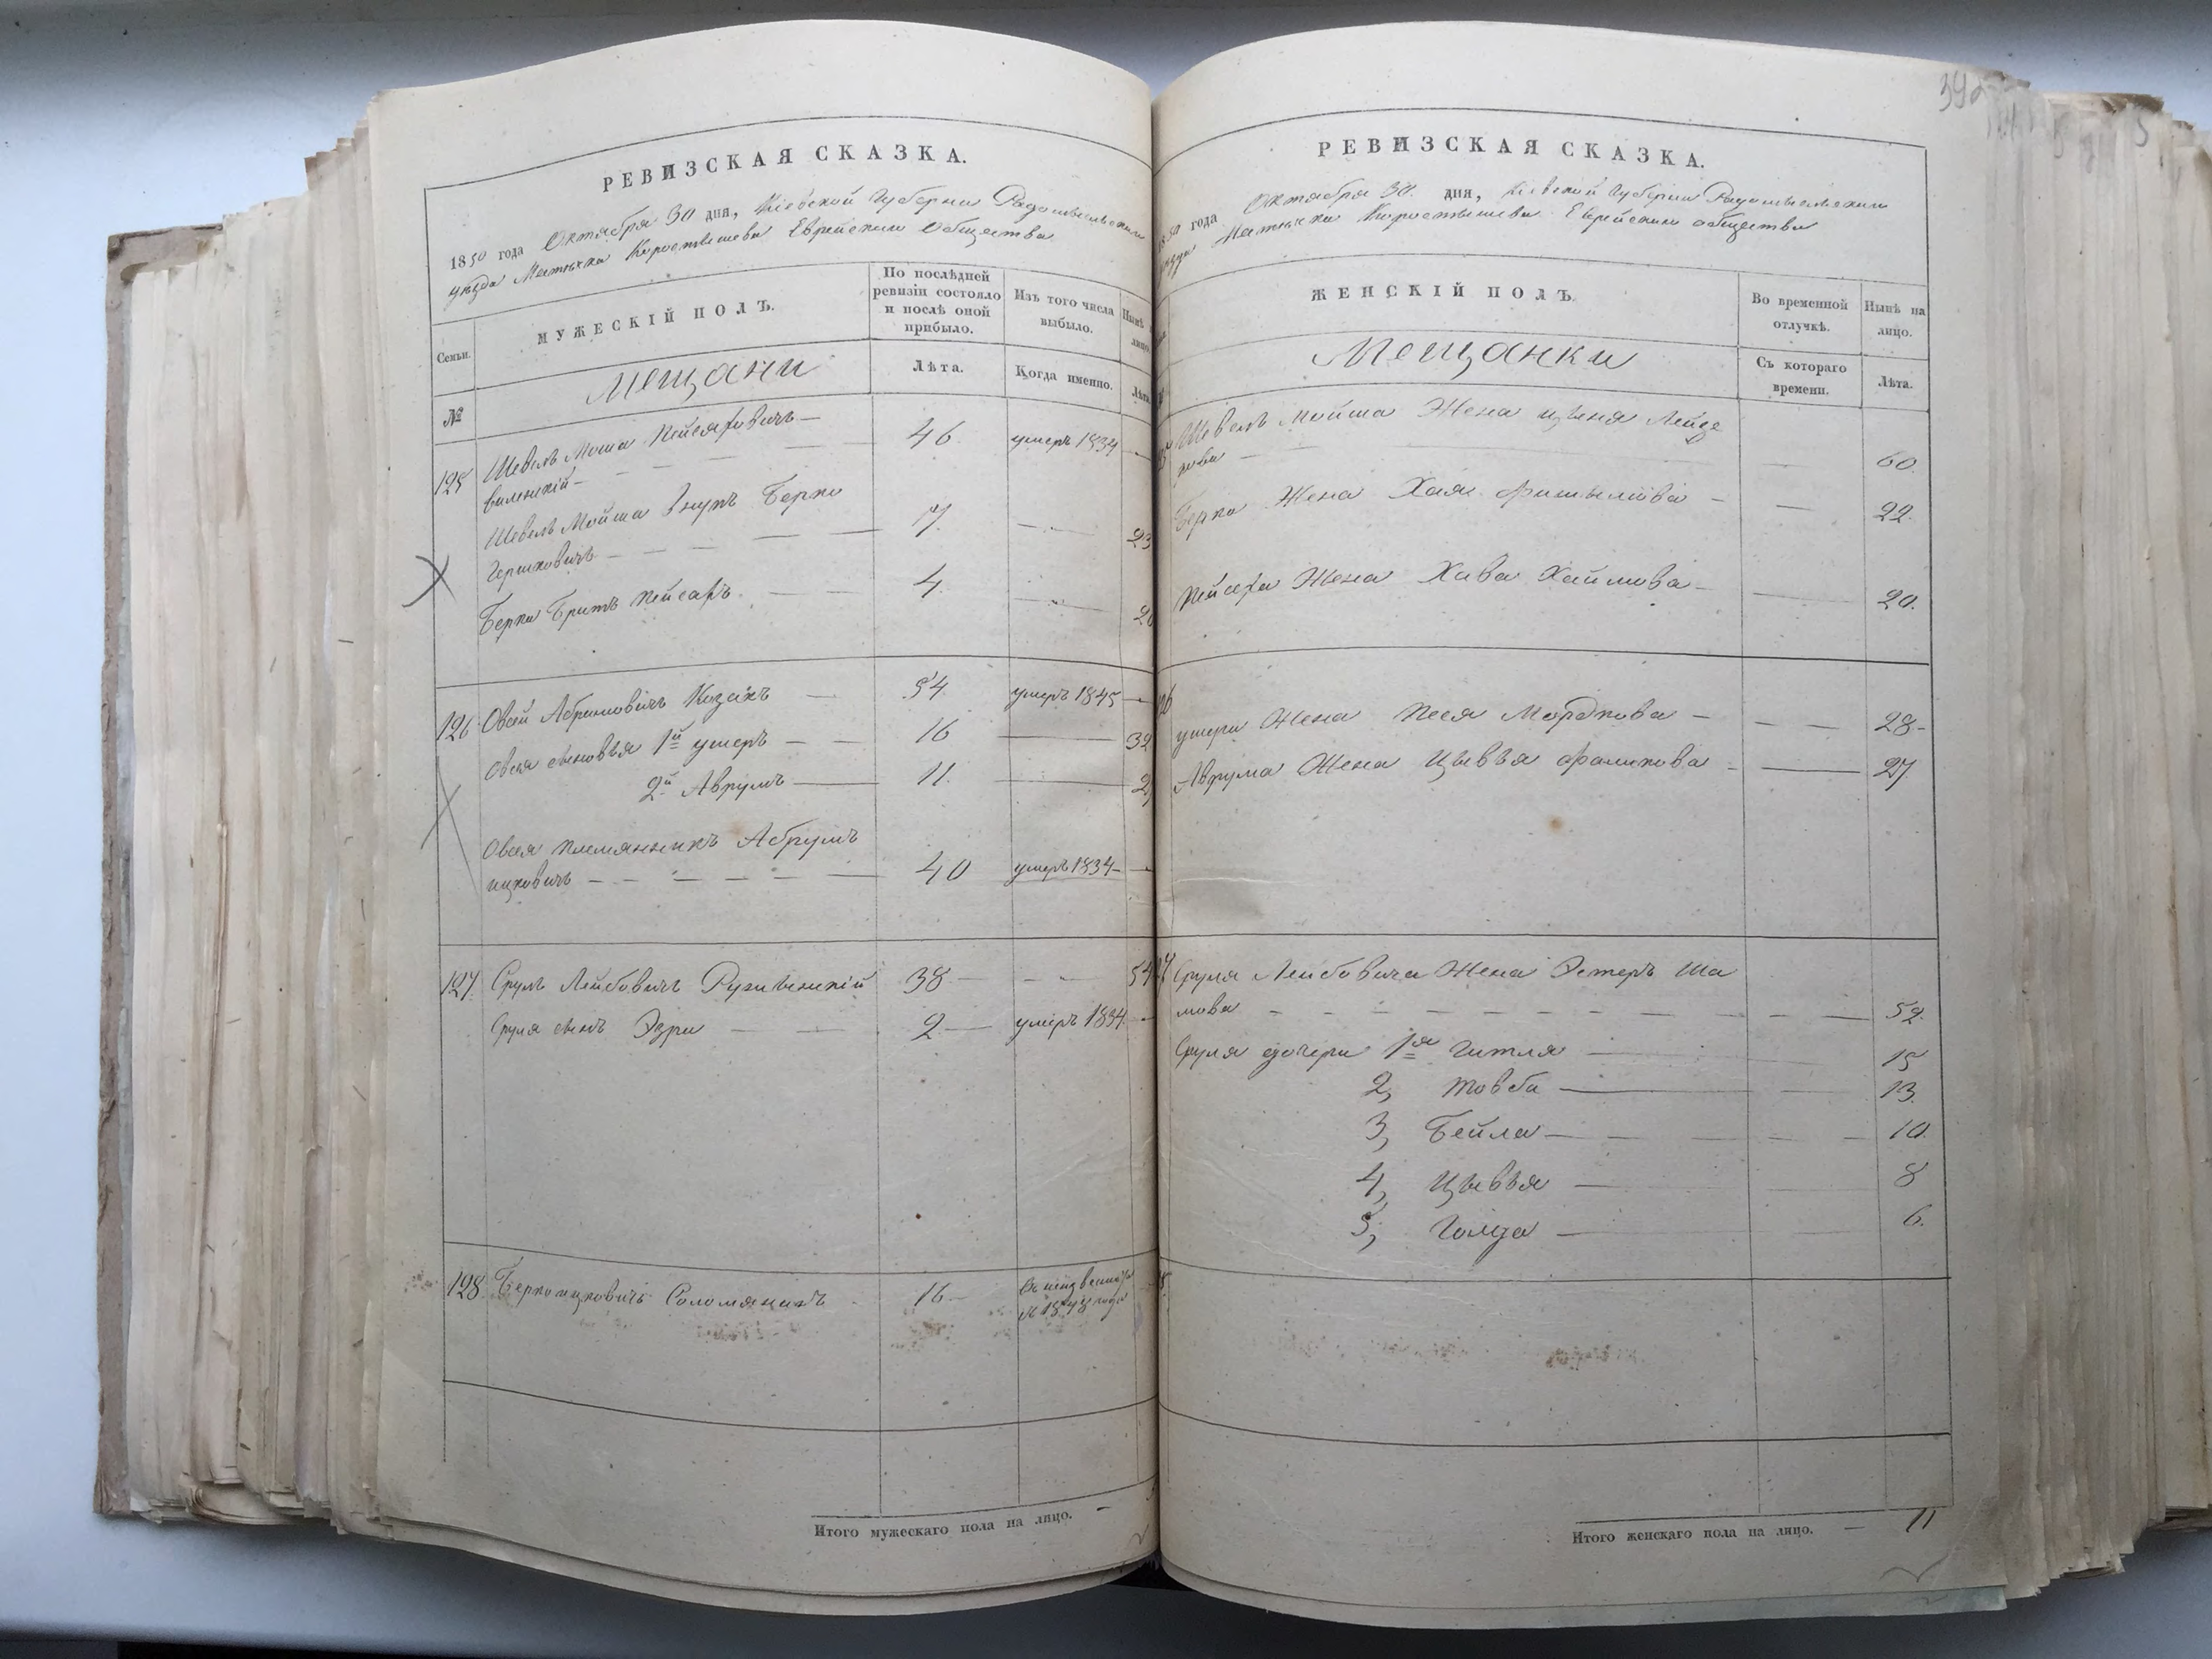 РЕВИЗСКАЯ СКАЗКА.
1850 года Октября 30 дня, Кіевской Губерніи Радомысльскаго
уѣзда Мѣстечка Коростышева Еврейскаго общества
Семьи.
МУЖЕСКІЙ ПОЛЪ.
По послѣдней
ревизіи состояло
и послѣ оной
прибыло.
Изъ того числа
выбыло.
Нынѣ
лицо
№
Мещани
Лѣта.
Когда именно.
Лѣта
125 Шевель Моша Пейсаховичъ 46 умеръ 1834
виленскій
Шевель Мойша Внукъ Берко 7. 23
Гершковичъ
Берки Братъ Пейсахъ 4. 20
126 Овсей Абрамовичъ Козакъ 54 умеръ 1845
Овсея сыновья 1й ушеръ 16 32
2й Аврумъ 11. 2
Овсея племянникъ Абрумъ
ицковичъ 40 умеръ 1834
127 Сруль Лейбовичъ Ружинскій 38 54
Сруля сынъ Эзри 2 умеръ 1834
128. Берко ицковичъ Соломяникъ 16
1848 года
Итого мужескаго пола на лицо.
РЕВИЗСКАЯ СКАЗКА.
1850 года Октября 30. дня, Кіевской Губерніи Радомысльскаго
уѣзда Мѣстечка Коростышева Еврейскаго общества
ЖЕНСКІЙ ПОЛЪ.
Во временной
отлучкѣ.
Нынѣ на
лицо.
Мещанки
Съ котораго
времени.
Лѣта.
Шевель Мойша Жена Цыня Лейзе
рова 60.
Берка Жена Хая Фишелева 22.
Пейсаха Жена Хава Хаимова 20.
126
ушера Жена Песя Мордкова 28
Аврума Жена Цывья Фроимкова 27
127 Сруля Лейбовича Жена Эстеръ Шл
мова 52.
Сруля дочери 1я Гитля 15
2, Товба 13.
3, Бейла 10.
4, Цывья 8
5, Голда 6.
Итого женскаго пола на лицо. 11